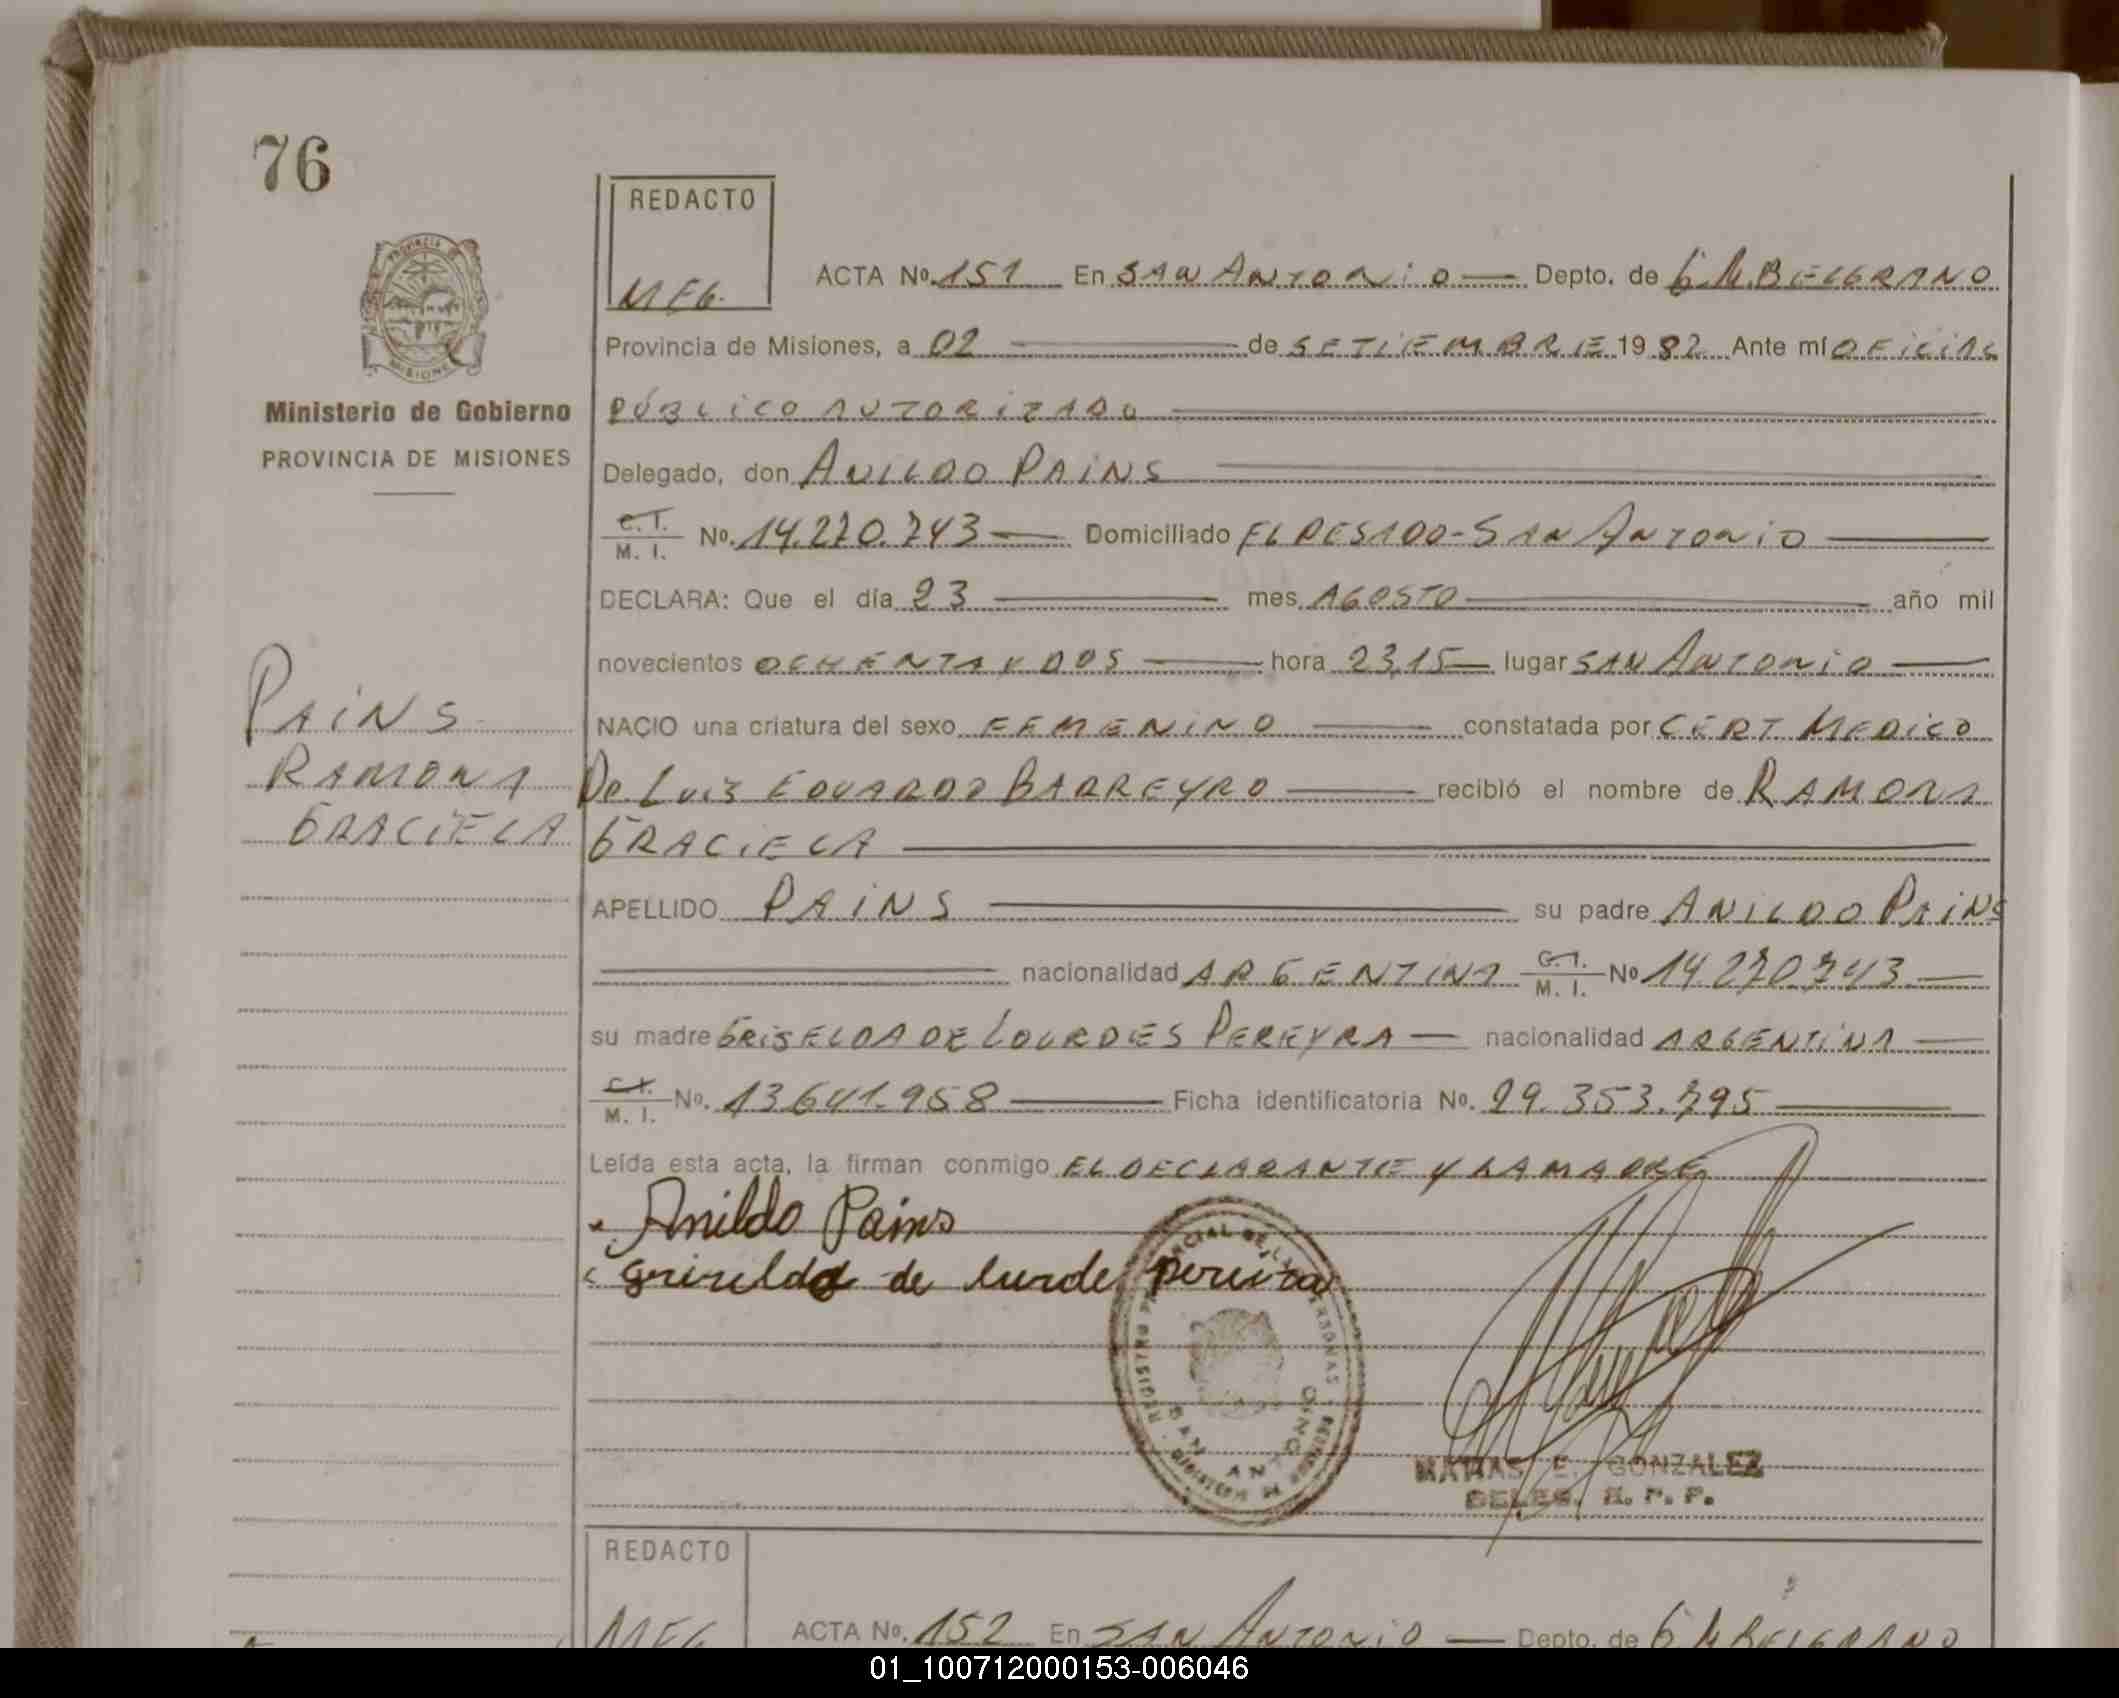 76
REDACTO
MEG.
ACTA No. 151 En SAN ANTONIO Depto. de G.M. BELGRANO
Provincia de Misiones, a 02 de SETIEMBRE 1982 Ante mí OFICIAL
PÚBLICO AUTORIZADO
Ministerio de Gobierno
PROVINCIA DE MISIONES
Delegado, don ANILDO PAINS
C. I. M. I. No. 14.270.743 Domiciliado EL DESADO-SAN ANTONIO
DECLARA: Que el día 23 mes AGOSTO año mil
novecientos OCHENTA Y DOS hora 23,15 lugar SAN ANTONIO
NACIO una criatura del sexo FEMENINO constatada por CERT MEDICO
Do. LUIS EDUARDO BARREYRO recibió el nombre de RAMONA
GRACIELA
PAINS
RAMONA
GRACIELA
APELLIDO PAINS su padre ANILDO PAINS
nacionalidad ARGENTINA C. I. M. I. No 14.270.743
su madre GRISELDA DE LOURDES PEREYRA nacionalidad ARGENTINA
C. I. M. I. No. 13.641.958 Ficha identificatoria No. 29.353.795
Leída esta acta, la firman conmigo EL DECLARANTE Y LA MADRE
Anildo Pains
Griselda de lurde pereira
SAN ANTONIO
MATIAS E. GONZALEZ
DELEG. R. P. P.
REDACTO
MEG
ACTA No. 152 En SAN ANTONIO Depto. de G M BELGRANO
01_100712000153-006046